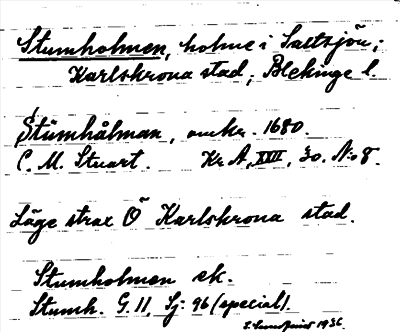 Stumholmen, holme i Saltsjön;
Karlskrona stad, Blekinge l.
Stümhålman, omkr. 1680.
C. M. Stuart. Kr A, XXII, 30. No 8.
Läge strax Ö Karlskrona stad.
Stumholmen ek.
Stumh. G. 11, Sj: 96 (special).
1936.